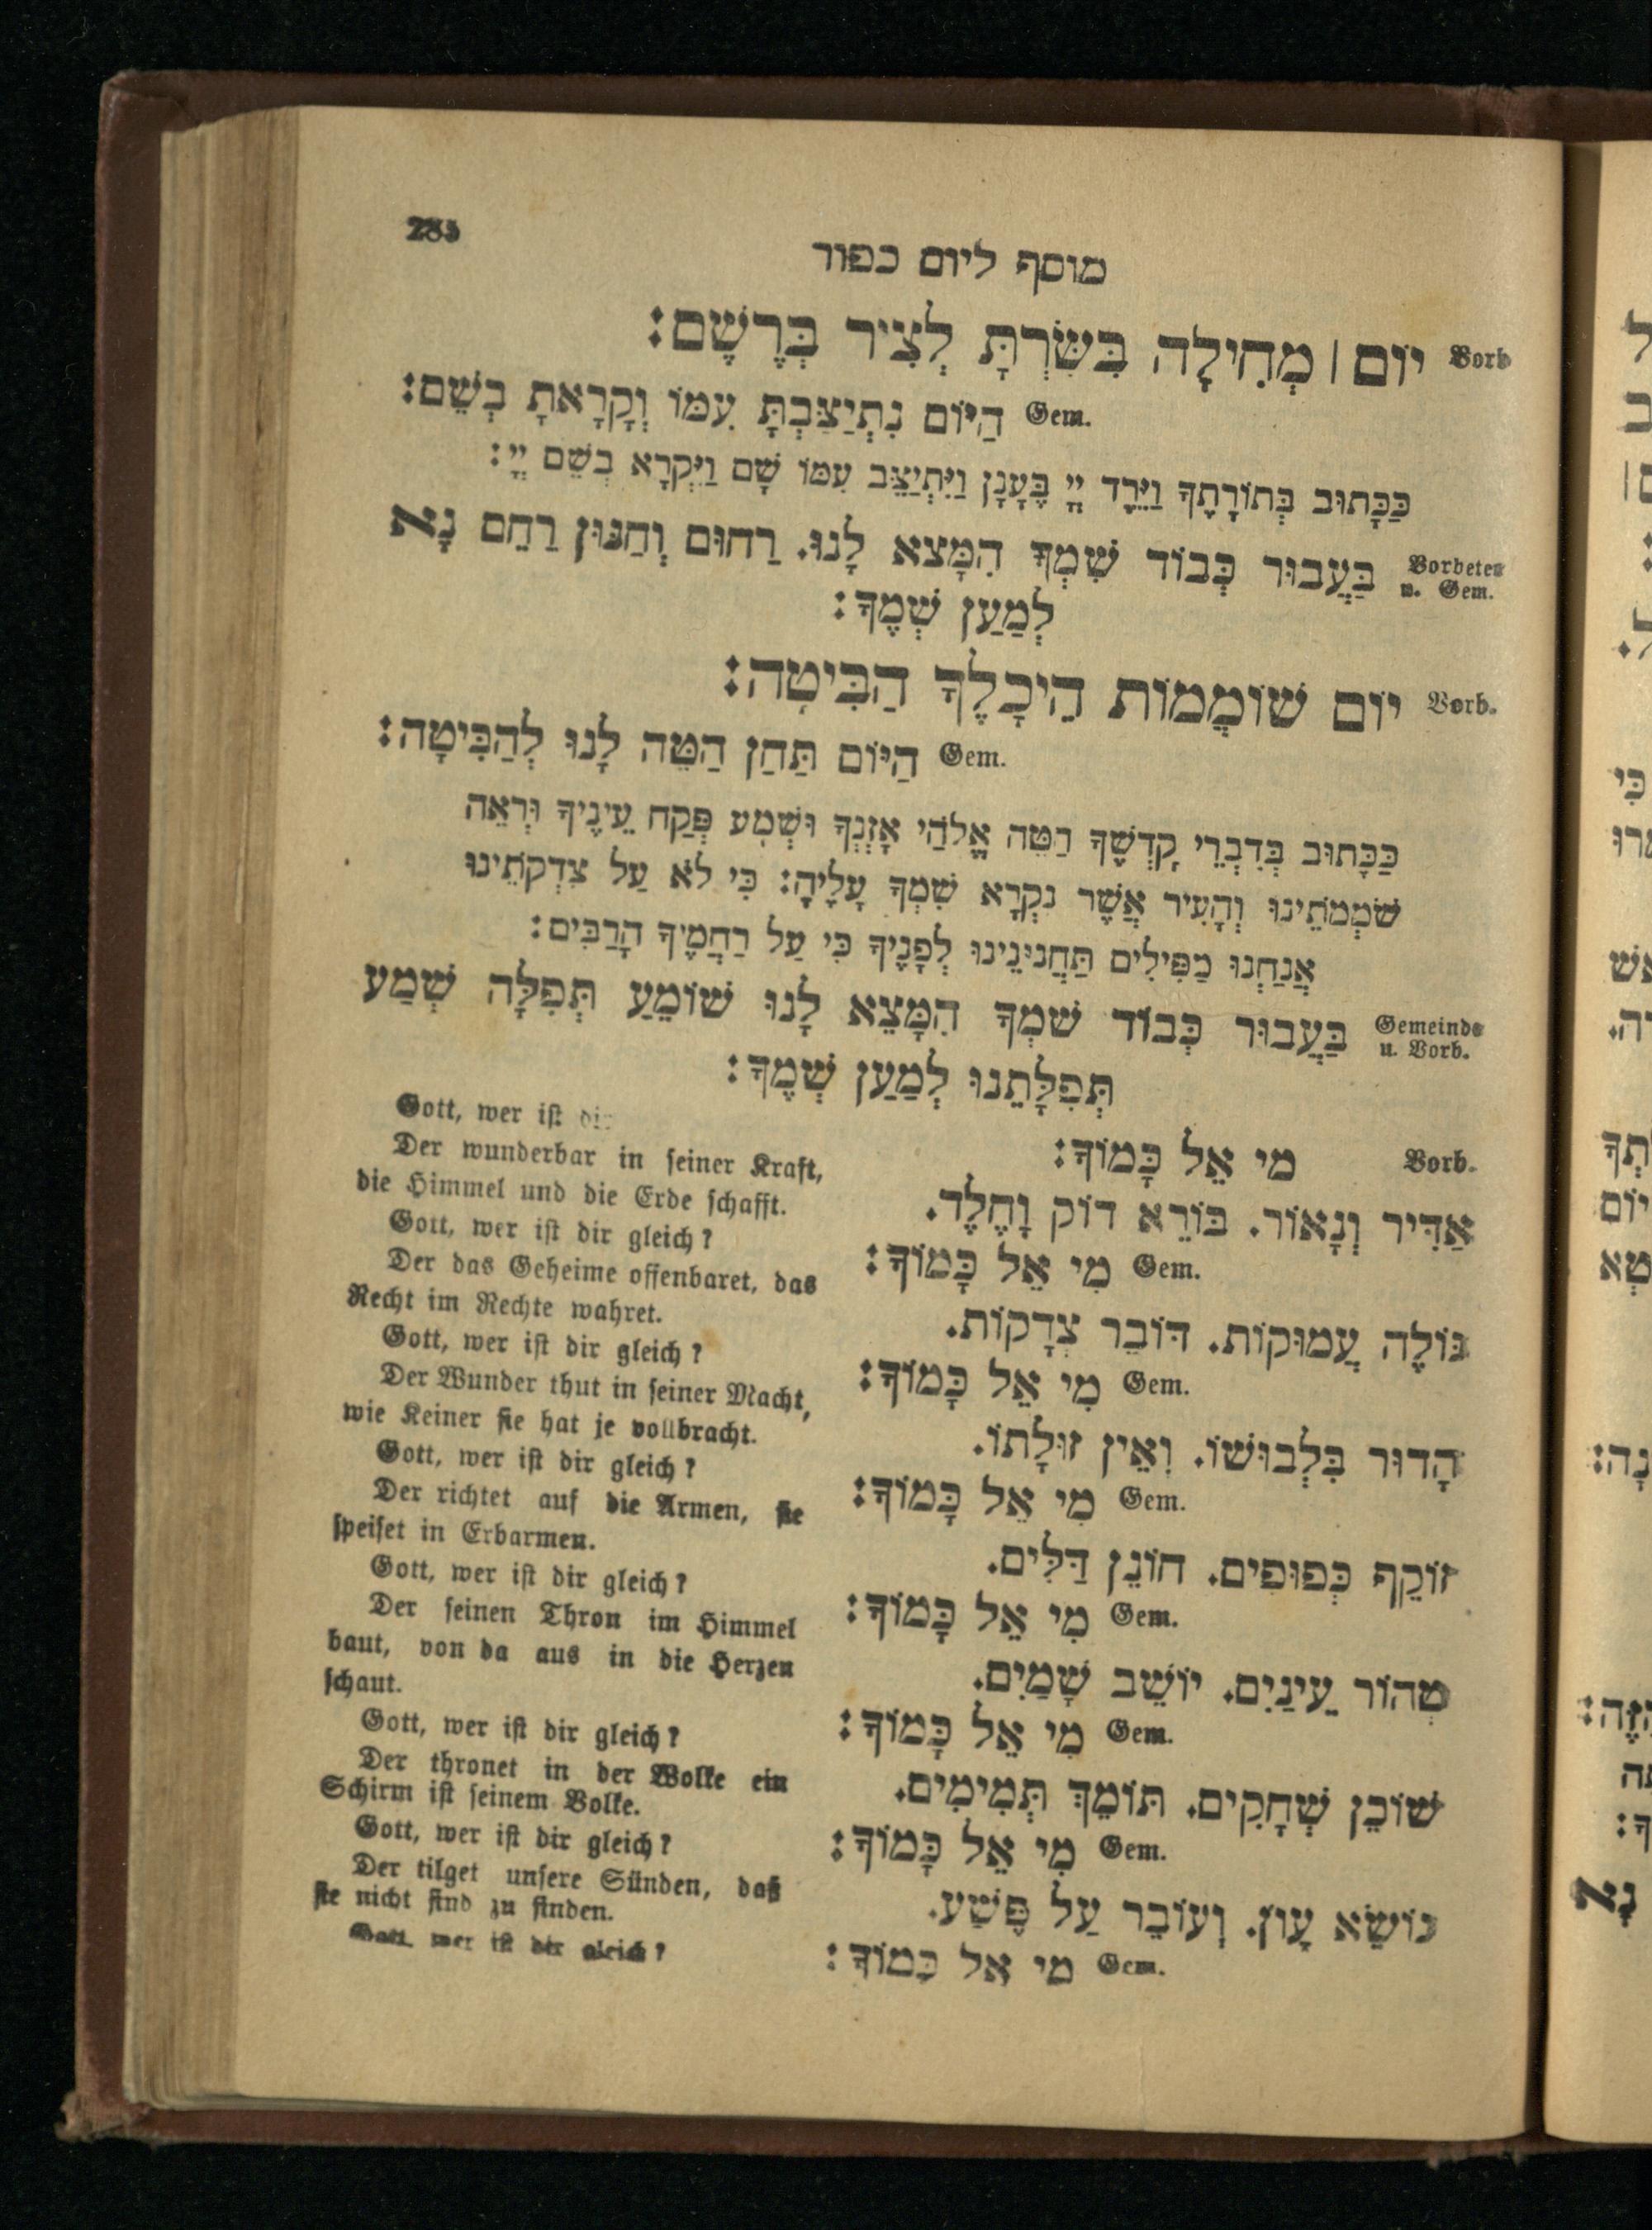 מוסף ליום כפור
Vorb יוֹם | מְחִילָה בִּשַּׂרְתָּ לְצִיר בְּרֶשֶׁם:
Gem. הַיּוֹם נִתְיַצַּבְתָּ עִמּוֹ וְקָרָאתָ בְשֵׁם:
כַּכָּתוּב בְּתוֹרָתֶךָ וַיֵּרֶד יְיָ בֶּעָנָן וַיִּתְיַצֵּב עִמּוֹ שָׁם וַיִּקְרָא בְשֵׁם יְיָ:
Vorbeter u. Gem. בַּעֲבוּר כְּבוֹד שִׁמְךָ הִמָּצֵא לָנוּ. רַחוּם וְחַנּוּן רַחֵם נָא
לְמַעַן שְׁמֶךָ:
Vorb. יוֹם שׁוֹמֲמוֹת הֵיכָלֶךָ הַבִּיטָה:
Gem. הַיּוֹם תַּחַן הַטֵּה לָנוּ לְהַבִּיטָה:
כַּכָּתוּב בְּדִבְרֵי קָדְשֶׁךָ הַטֵּה אֱלֹהַי אָזְנְךָ וּשְׁמָע פְּקַח עֵינֶיךָ וּרְאֵה
שֹׁמְמֹתֵינוּ וְהָעִיר אֲשֶׁר נִקְרָא שִׁמְךָ עָלֶיהָ: כִּי לֹא עַל צִדְקֹתֵינוּ
אֲנַחְנוּ מַפִּילִים תַּחֲנוּנֵינוּ לְפָנֶיךָ כִּי עַל רַחֲמֶיךָ הָרַבִּים:
Gemeinde u. Vorb. בַּעֲבוּר כְּבוֹד שִׁמְךָ הִמָּצֵא לָנוּ שׁוֹמֵעַ תְּפִלָּה שְׁמַע
תְּפִלָּתֵנוּ לְמַעַן שְׁמֶךָ:
Vorb. מִי אֵל כָּמוֹךָ:
אַדִּיר וְנָאוֹר. בּוֹרֵא דוֹק וָחֶלֶד.
Gem. מִי אֵל כָּמוֹךָ:
גּוֹלֶה עֲמוּקוֹת. דּוֹבֵר צְדָקוֹת.
Gem. מִי אֵל כָּמוֹךָ:
הָדוּר בִּלְבוּשׁוֹ. וְאֵין זוּלָתוֹ.
Gem. מִי אֵל כָּמוֹךָ:
זוֹקֵף כְּפוּפִים. חוֹנֵן דַּלִּים.
Gem. מִי אֵל כָּמוֹךָ:
טְהוֹר עֵינַיִם. יוֹשֵׁב שָׁמַיִם.
Gem. מִי אֵל כָּמוֹךָ:
שׁוֹכֵן שְׁחָקִים. תּוֹמֵךְ תְּמִימִים.
Gem. מִי אֵל כָּמוֹךָ:
נוֹשֵׂא עָוֹן. וְעוֹבֵר עַל פֶּשַׁע.
Gem. מִי אֵל כָּמוֹךָ:
Gott, wer ist
Der wunderbar in seiner Kraft,
die Himmel und die Erde schafft.
Gott, wer ist dir gleich?
Der das Geheime offenbaret, das
Recht im Rechte wahret.
Gott, wer ist dir gleich?
Der Wunder thut in seiner Macht,
wie Keiner sie hat je vollbracht.
Gott, wer ist dir gleich?
Der richtet auf die Armen, sie
speiset in Erbarmen.
Gott, wer ist dir gleich?
Der seinen Thron im Himmel
baut, von da aus in die Herzen
schaut.
Gott, wer ist dir gleich?
Der thronet in der Wolke ein
Schirm ist seinem Volke.
Gott, wer ist dir gleich?
Der tilget unsere Sünden, daß
sie nicht sind zu finden.
Gott wer ist dir gleich?